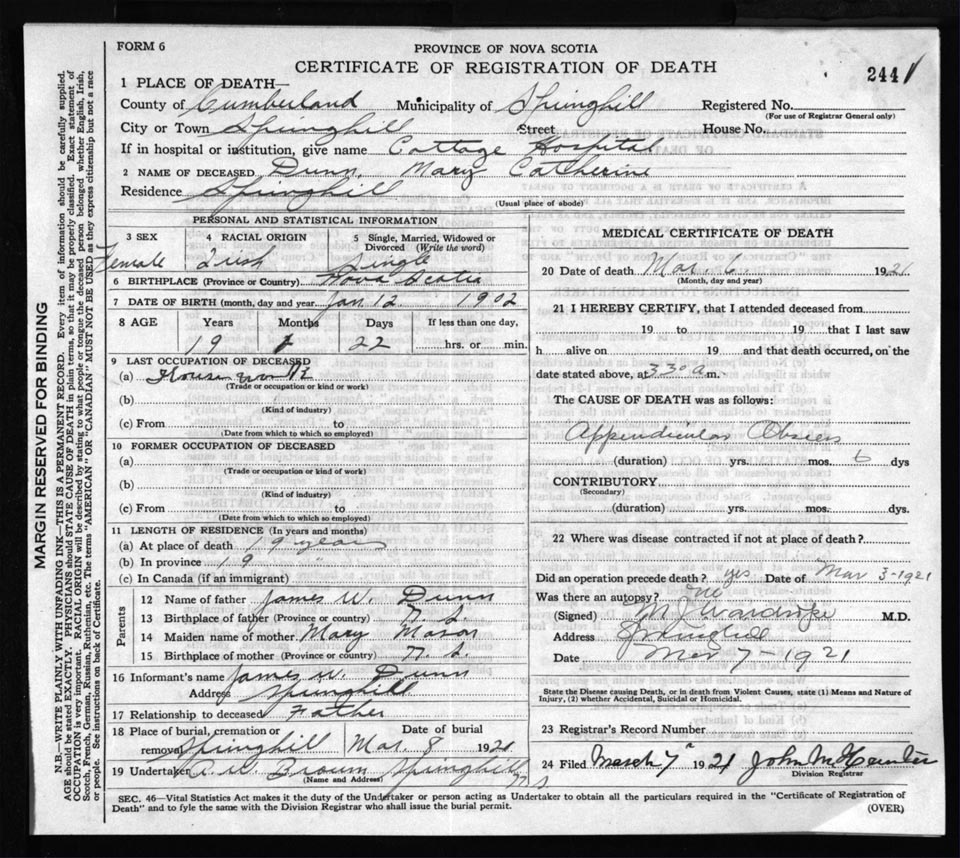 FORM 6
PROVINCE OF NOVA SCOTIA
CERTIFICATE OF REGISTRATION OF DEATH
2441
1 PLACE OF DEATH
County of Cumberland Municipality of Springhill Registered No.
(For use of Registrar General only)
City or Town Springhill Street House No.
If in hospital or institution, give name Cottage Hospital
2 NAME OF DECEASED Dunn, Mary Catherine
Residence Springhill
(Usual place of abode)
PERSONAL AND STATISTICAL INFORMATION
3 SEX 4 RACIAL ORIGIN 5 Single, Married, Widowed or Divorced (Write the word)
Female Irish Single
6 BIRTHPLACE (Province or Country) Nova Scotia
7 DATE OF BIRTH (month, day and year) Jan 12 1902
8 AGE Years Months Days If less than one day,
19 1 22 hrs. or min.
9 LAST OCCUPATION OF DECEASED
(a) House work
(Trade or occupation or kind or work)
(b)
(Kind of industry)
(c) From to
(Date from which to which so employed)
10 FORMER OCCUPATION OF DECEASED
(a)
(Trade or occupation or kind of work)
(b)
(Kind of industry)
(c) From to
(Date from which to which so employed)
11 LENGTH OF RESIDENCE (In years and months)
(a) At place of death 19 years
(b) In province 19
(c) In Canada (if an immigrant)
Parents
12 Name of father James W. Dunn
13 Birthplace of father (Province or country) N. S.
14 Maiden name of mother Mary Mason
15 Birthplace of mother (Province or country) N. S.
16 Informant's name James W. Dunn
Address Springhill
17 Relationship to deceased Father
18 Place of burial, cremation or Date of burial
removal Springhill Mar. 8 1921
19 Undertaker A. W. Brown Springhill N S
(Name and Address)
MEDICAL CERTIFICATE OF DEATH
20 Date of death Mar. 6 1921
(Month, day and year)
21 I HEREBY CERTIFY, that I attended deceased from
19 to 19 that I last saw
h alive on 19 and that death occurred, on the
date stated above, at 330 a m.
The CAUSE OF DEATH was as follows:
Appendicular
(duration) yrs. mos. 6 dys
CONTRIBUTORY
(Secondary)
(duration) yrs. mos. dys.
22 Where was disease contracted if not at place of death?
Did an operation precede death? yes Date of Mar 3-1921
Was there an autopsy? no
(Signed) M J Wardrope M.D.
Address Springhill
Date Mar 7-1921
State the Disease causing Death, or in death from Violent Causes, state (1) Means and Nature of
Injury, (2) whether Accidental, Suicidal or Homicidal.
23 Registrar's Record Number
24 Filed March 7 1921 John M Hunter
Division Registrar
SEC. 46—Vital Statistics Act makes it the duty of the Undertaker or person acting as Undertaker to obtain all the particulars required in the "Certificate of Registration of
Death" and to fyle the same with the Division Registrar who shall issue the burial permit.
(OVER)
MARGIN RESERVED FOR BINDING
N.B.—WRITE PLAINLY WITH UNFADING INK.—THIS IS A PERMANENT RECORD. Every item of information should be carefully supplied.
AGE should be stated EXACTLY. PHYSICIANS should STATE CAUSE OF DEATH in plain terms, so that it may be properly classified. Exact statement of
OCCUPATION is very important. RACIAL ORIGIN will be described by stating to what people or tongue the deceased person belonged whether English, Irish,
Scotch, French, German, Russian, Ruthenian, etc. The terms "AMERICAN" OR "CANADIAN" MUST NOT BE USED as they express citizenship but not a race
or people. See instructions on back of Certificate.